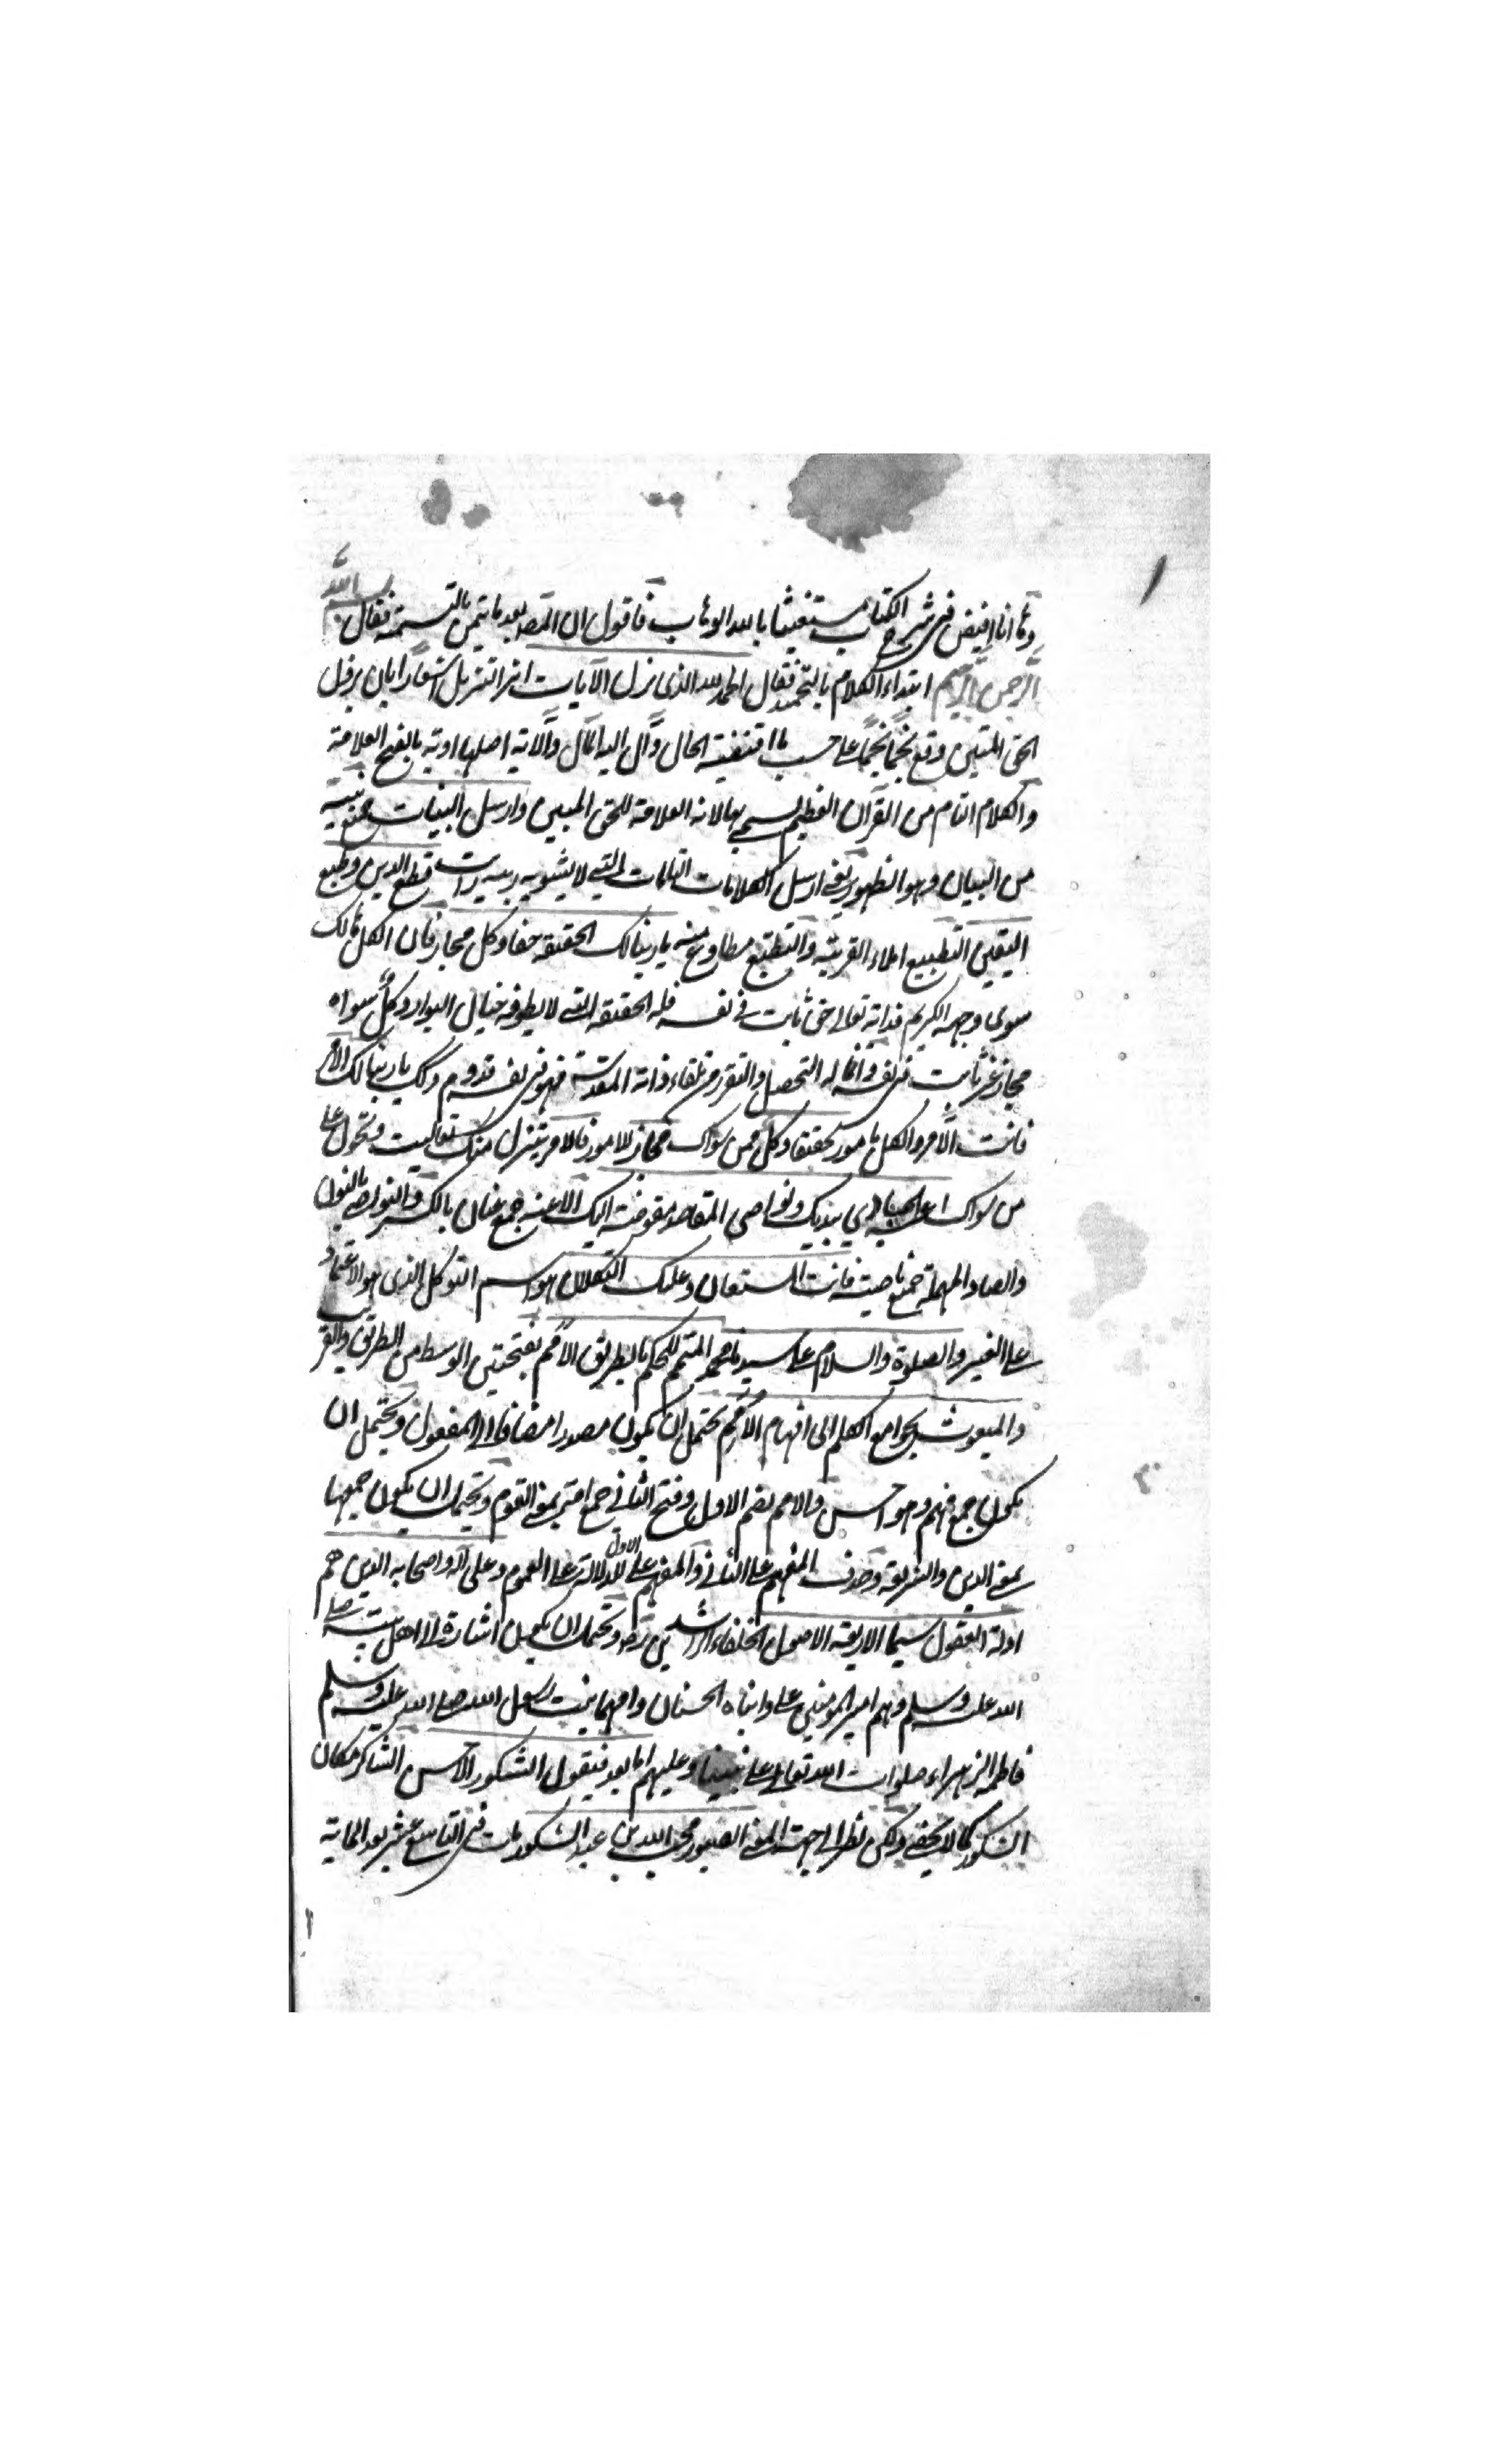 وها انا افيض فى شرح الكتاب مستغيثا بالله الوهاب فاقول ان المص بعد ما تيمن بالتسمية فقال بسم الله
الرحمن الرحيم ابتداء الكلام بالتحميد فقال الحمد لله الذى نزل الآيات اثر التنزيل اشعارا بان نزول
الحق المتين وقع نجمًا نجمًا على حسب ما اقتضته الحال وآل اليه المآل والآية اصلها اوية بالفتح العلامة
والكلام التام من القرآن العظيم سمى بها لانه العلامة للحق المبين وارسل البينات جمع بينة
من البيان وهو الظهور يعنى ارسل الكلامات التامات التى لا يشوبه ريبة فطلع الدين وطبع
اليقين التطبيع املاء القربة والتطبع مطاوع منه يا ربنا لك الحقيقة حقا وكل مجاز فان الكل هالك
سوى وجهه الكريم فذاته تعالى حق ثابت فى نفسه فله الحقيقة التى لا يطوفه خيال البوار وكل سواه
مجاز غير ثابت فى نفسه وانما له التحصل والتقرر من تلقاء ذاته المقدسة فهو فى نفسه معدوم ولك يا ربنا لك الامر
فانت الآمر والكل مامور تحقيقا وكل من سواك مجاز للامور فالامر يتنزل منك تعاليت وتحول على
من سواك اعنة المبادى بيديك ونواصى المقاصد مفوضة اليك الاعنة جمع عنان بالكسر والنواصى بالنون
والصاد المهملة جمع ناصية فانت المستعان وعليك التكلان هو اسم التوكل الذى هو الاعتماد
على الغير والصلوة والسلام على سيدنا محمد المتمم للحكم بالطريق الامم بفتحتين الوسط من الطريق والقرب
والمبعوث بجوامع الكلم الى افهام الامم يحتمل ان يكون مصدرا مضافا الى المفعول ويحتمل ان
يكون جمع فهم وهو احسن والامم بضم الاول وفتح الثانى جمع امة بمعنى القوم ويحتمل ان يكون جمعها
بمعنى الدين والشريعة وحذف المفهم على الثانى والمفهم على الاول للدلالة على العموم وعلى آله واصحابه الذين هم
ادلة العقول سيما الاربعة الاصول الخلفاء الراشدين رض ويحتمل ان يكون اشارة الى اهل بيته صلى
الله عليه وسلم وهم امير المومنين على وابناه الحسنان وامهما بنت رسول الله صلى الله عليه وسلم
فاطمة الزهراء صلوات الله تعالى على نبينا وعليهم اما بعد فيقول الشكور الاحسن الشاكر مكان
الشكور كما لا يخفى ولكن نظرا الى جهة المعنى الصبور محب الله بن عبد الشكور مات فى التاسع عشر بعد المائة